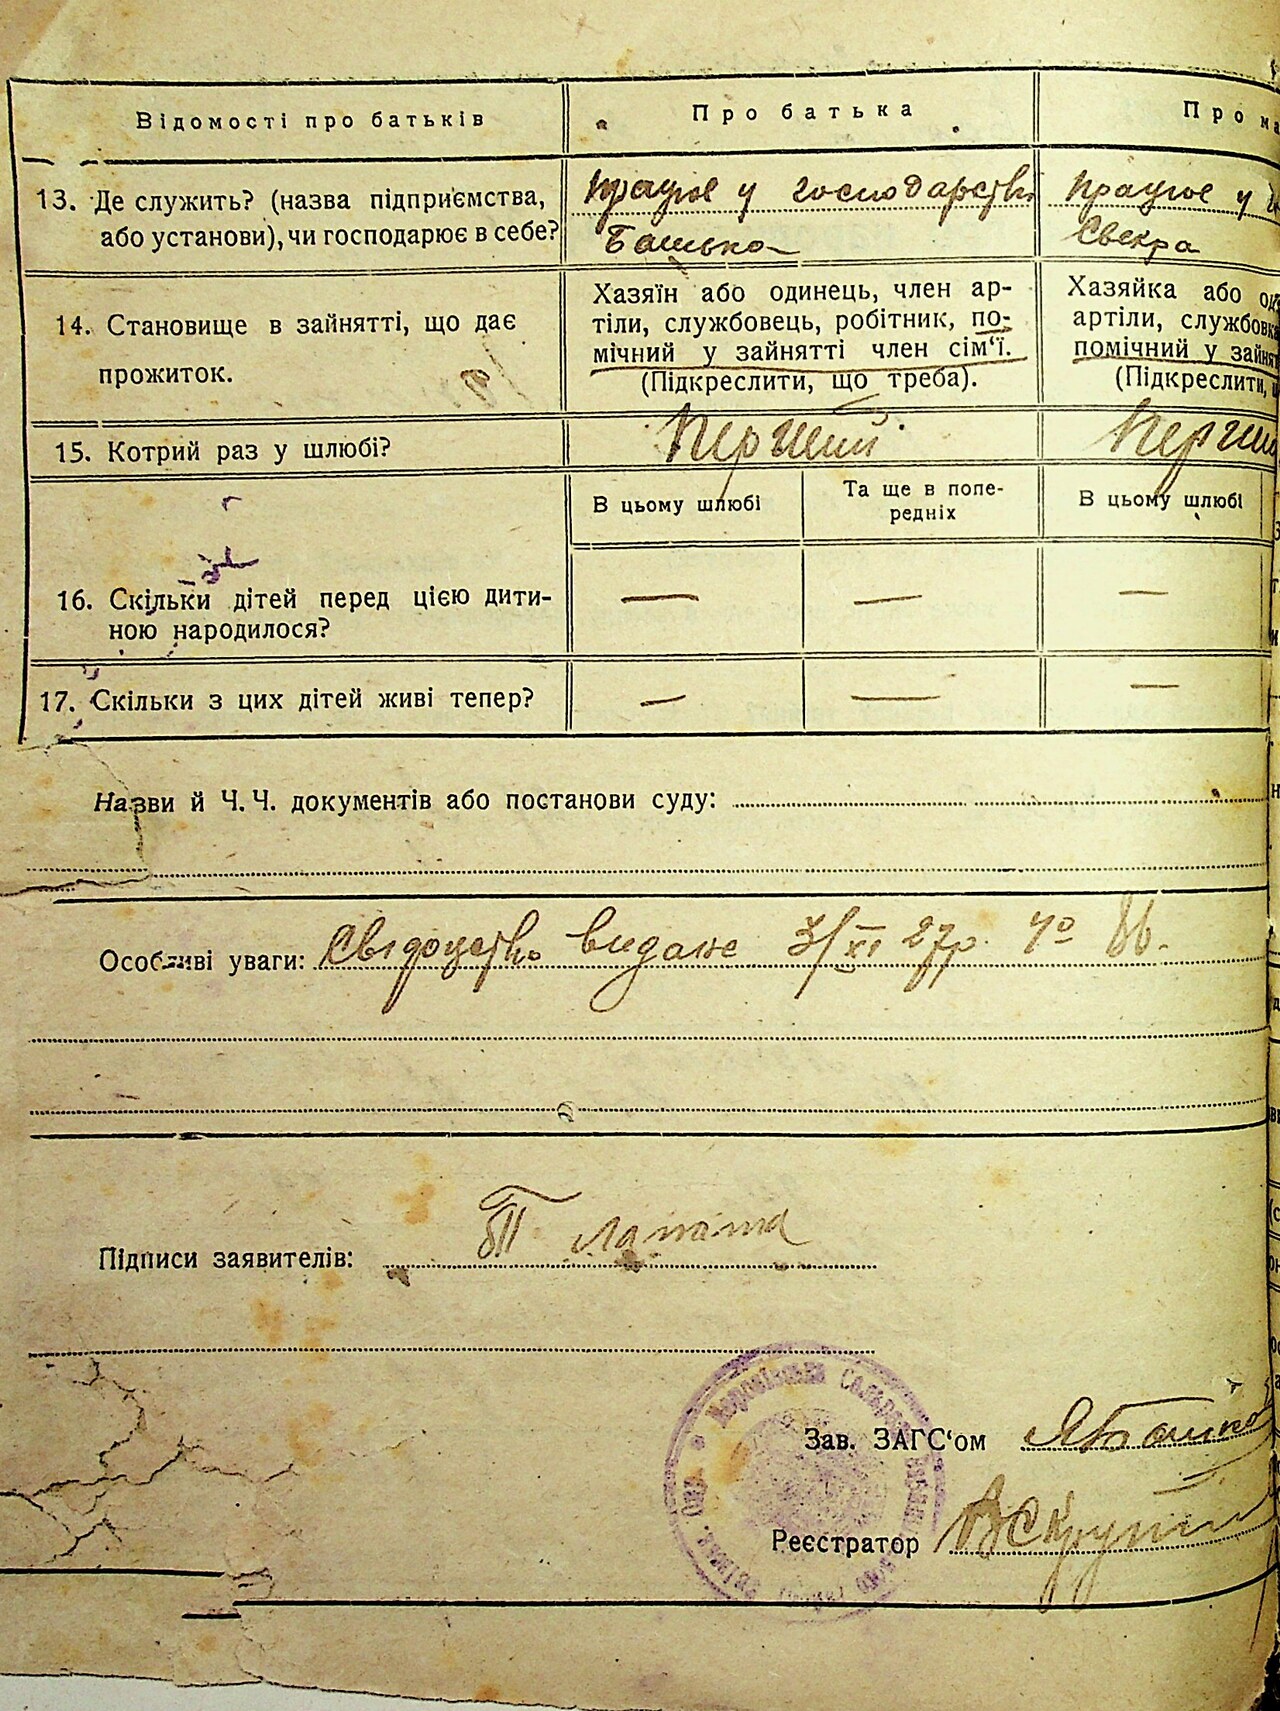 Відомості про батьків
Про батька
Про ма
13. Де служить? (назва підприємства,
або установи), чи господарює в себе?
працює у господарстві
Батька
працює у
Свекра
14. Становище в зайнятті, що дає
прожиток.
Хазяїн або одинець, член ар-
тіли, службовець, робітник, по-
мічний у зайнятті член сім‘ї.
(Підкреслити, що треба).
Хазяйка або од
артіли, службовк
помічний у зайнят
(Підкреслити,
15. Котрий раз у шлюбі?
Перший
Перший
В цьому шлюбі
Та ще в попе-
редніх
В цьому шлюбі
16. Скільки дітей перед цією дити-
ною народилося?
— — —
17. Скільки з цих дітей живі тепер?
— — —
Назви й Ч. Ч. документів або постанови суду:
Особливі уваги: Свідоцтво видане 3/XI 27р. Чо 86.
Підписи заявителів: Лапата
Зав. ЗАГС‘ом
Реєстратор